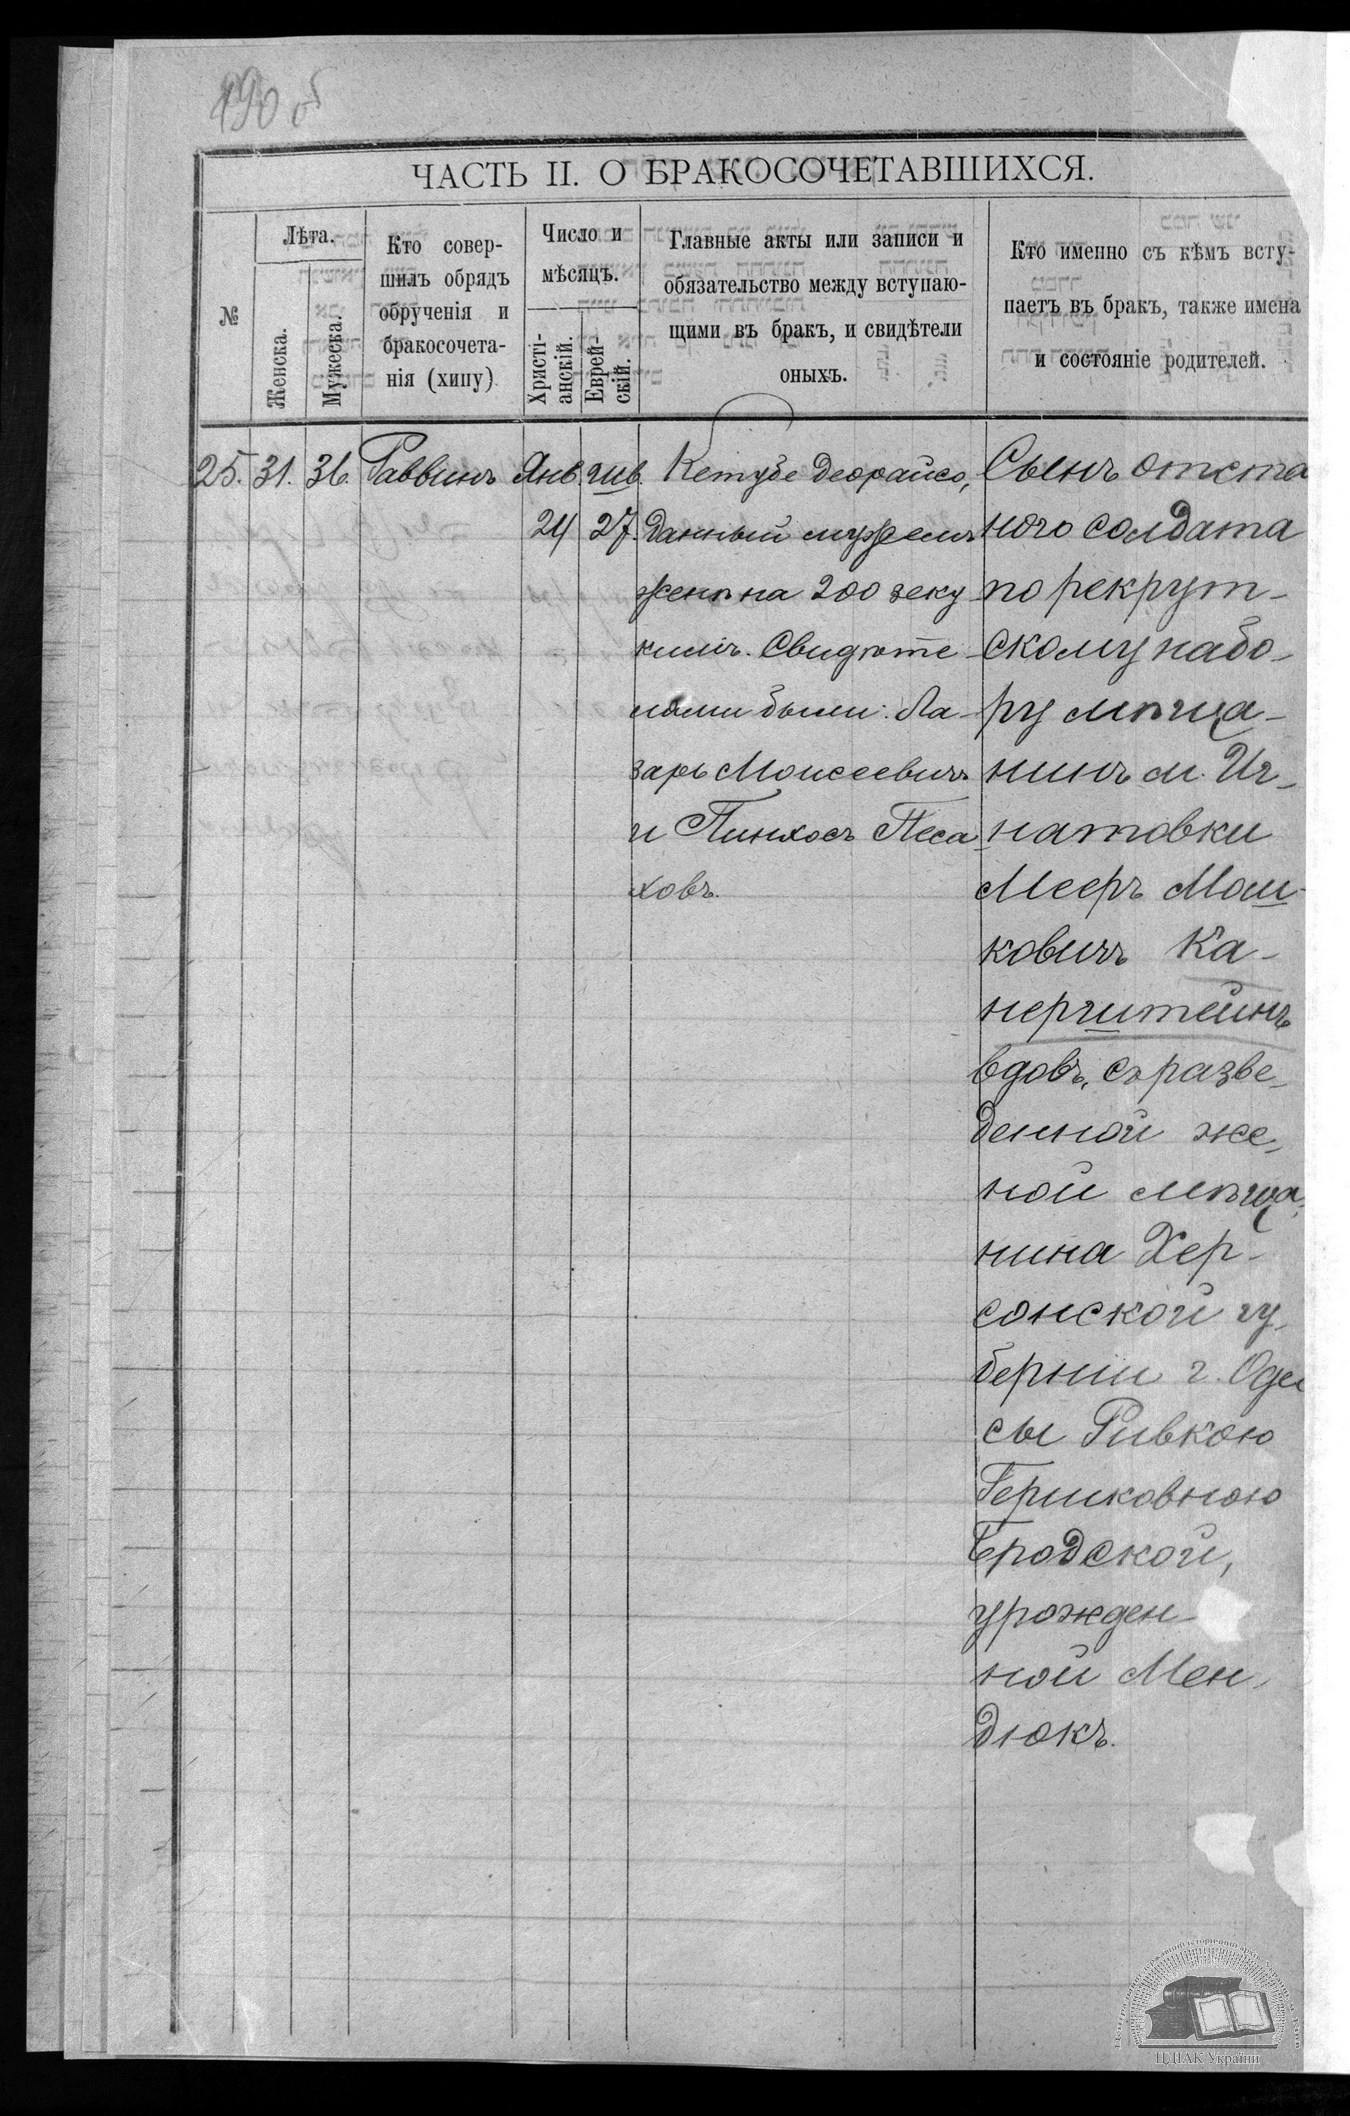 190 об
ЧАСТЬ II. О БРАКОСОЧЕТАВШИХСЯ.
№
Лѣта.
Женска.
Мужеска.
Кто совер-
шилъ обрядъ
обрученія и
бракосочета-
нія (хипу)
Число и
мѣсяцъ.
Христі-
анскій.
Еврей-
скій.
Главные акты или записи и
обязательство между вступаю-
щими въ бракъ, и свидѣтели
оныхъ.
Кто именно съ кѣмъ всту-
паетъ въ бракъ, также имена
и состояніе родителей.
25.
31.
36.
Раввинъ
Янв.
24
шв.
27.
Кетубе Деорайсо,
данный мужемъ
женѣ на 200 зеку
кимъ. Свидѣте
лями были: Ла-
зарь Моисеевичъ
и Пинхосъ Песа
ховъ.
Сынъ отста
ного солдата
по рекрут-
скому набо-
ру мѣща-
нинъ м. Иг-
натовки
Мееръ Мош-
ковичъ Ка-
нерштейнъ
вдовъ, съ разве-
денной же-
ной мѣща-
нина Хер-
сонской гу-
берніи г. Оде
сы Ривкою
Гершковною
Бродской,
урожден-
ной Мен-
дюкъ.
ЦДІАК України